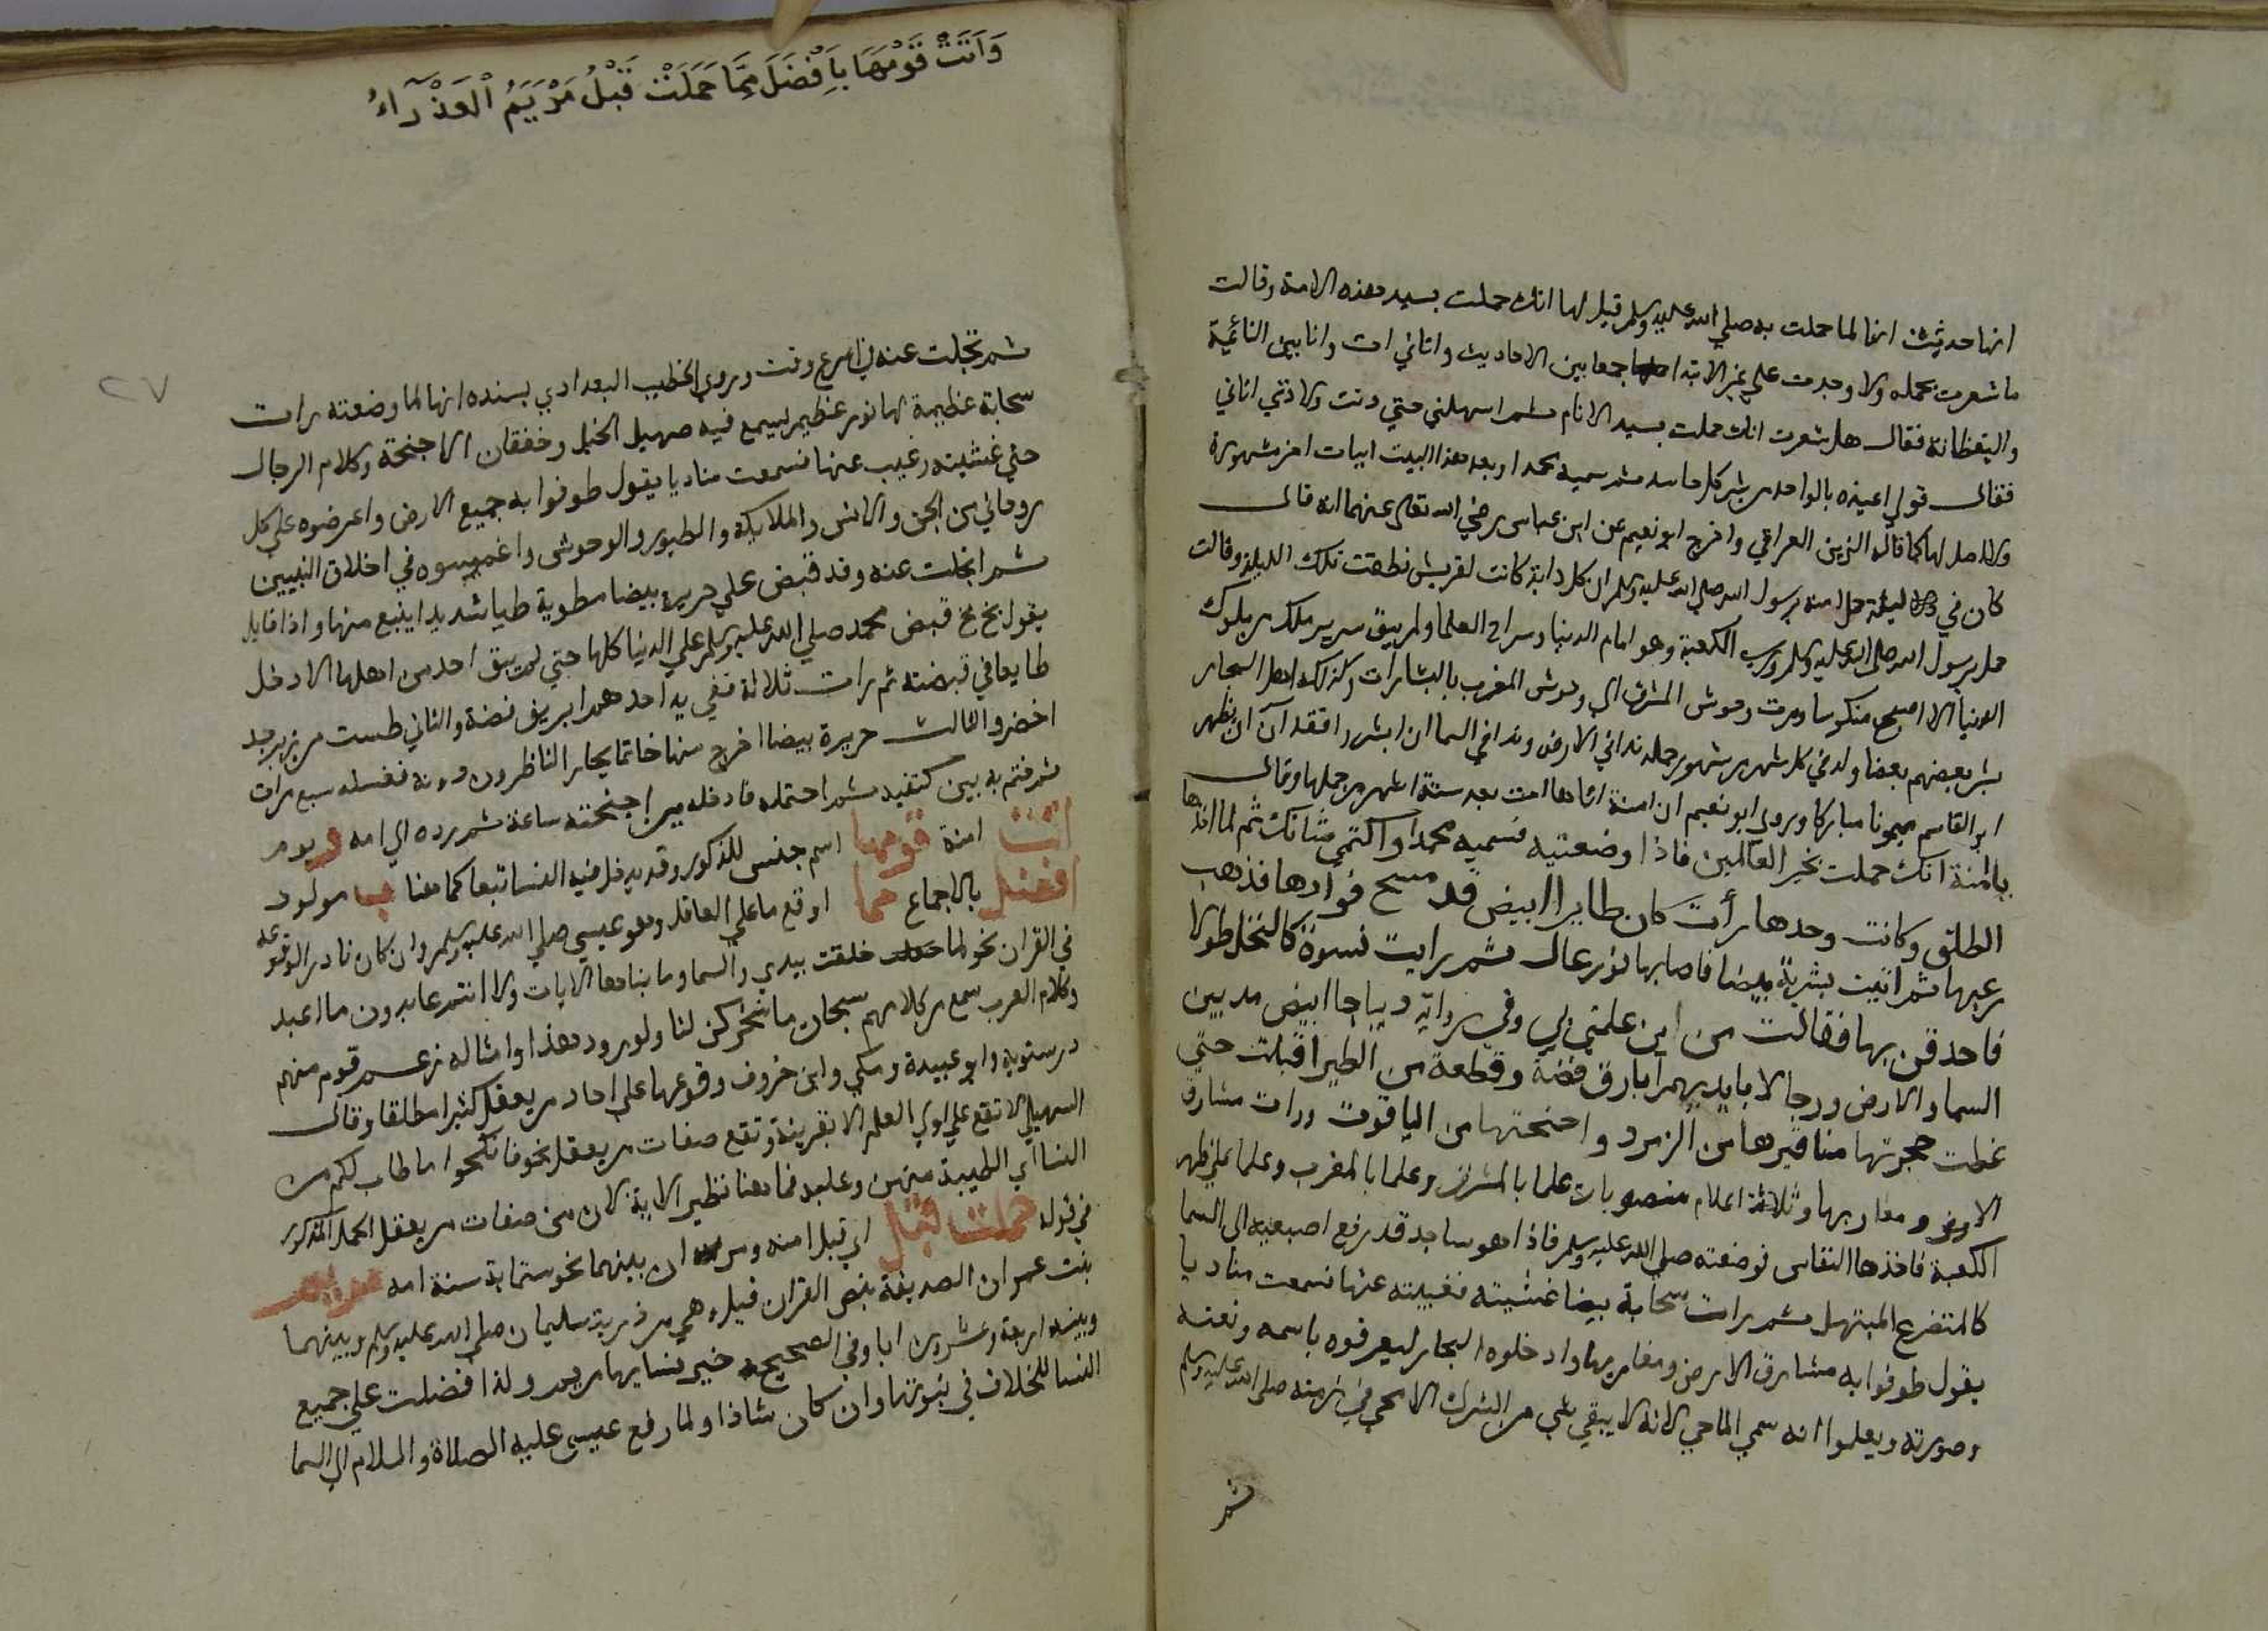 انها حديث انها لما حملت به صلي الله عليه وسلم قيل لها انك حملت بسيد هذه الامة وقالت
ما شعرت بحمله ولا وجدت علي غير الابتدا جمعا بين الاحاديث واتاني ات وانا بين النائمة
واليقظانة فقال هل شعرت انك حملت بسيد الانام ثم امهلني حتي دنت ولادتي اتاني
فقال قولي اعيذه بالواحد من شر كل حاسد ثم سميه محمدا وبعد هذا البيت ابيات اخر مشهورة
ولا اصل لها كما قاله الزين العراقي واخرج ابو نعيم عن ابن عباس رضي الله تعالي عنهما انه قال
كان في ليلة حمل امنه برسول الله صلي الله عليه وسلم ان كل دابة كانت لقريش نطقت تلك الليلة وقالت
حمل برسول الله صلي الله عليه وسلم ورب الكعبة وهو امام الدنيا وسراج العلما ولم يبق سرير ملك من ملوك
الدنيا الا اصبح منكوسا ومرت وحوش المشرق الي وحوش المغرب بالبشارات وكذلك اهل البحار
يبشر بعضهم بعضا وله في كل شهر من شهور حمله ندا في الارض وندا في السما ان ابشروا فقد ان ان يظهر
ابو القاسم ميمونا مباركا وروي ابو نعيم ان امنة اتاها ات بعد ستة اشهر من حملها وقال
يا امنة انك حملت بخير العالمين فاذا وضعتيه فسميه محمدا واكتمي شانك ثم لما اخذها
الطلق وكانت وحدها رأت كان طايرا ابيض قد مسح فوادها فذهب
رعبها ثم اتيت بشربة بيضا فاصابها نور عال ثم رايت نسوة كالنخل طولا
فاحدقن بها فقالت من اين علمتن بي وفي رواية ديباجا ابيض مد بين
السما والارض ورجالا بايديهم اباريق فضة وقطعة من الطير اقبلت حتي
غطت حجرتها مناقيرها من الزمرد واجنحتها من الياقوت ورات مشارق
الارض ومغاربها وثلاثة اعلام منصوبات علما بالمشرق وعلما بالمغرب وعلما علي ظهر
الكعبة فاخذها النفاس فوضعته صلي الله عليه وسلم فاذا هو ساجد قد رفع اصبعيه الي السما
كالمتضرع المبتهل ثم رات سحابة بيضا غشيته فغيبته عنها فسمعت مناديا
يقول طوفوا به مشارق الارض ومغاربها وادخلوه البحار ليعرفوه باسمه ونعته
وصورته ويعلموا انه سمي الماحي لانه لا يبقي شي من الشرك الا محي في زمنه صلي الله عليه وسلم
ثم
وَاَتَتْ قَوْمَهَا بِاَفْضَلَ مِمَّا حَمَلَتْ قَبْلُ مَرْيَمُ الْعَذْرَآءُ
٢٧
ثم تجلت عنه في اسرع وقت وروي الخطيب البغدادي بسنده انها لما وضعته رات
سحابة عظيمة لها نور عظيم يسمع فيه صهيل الخيل وخفقان الاجنحة وكلام الرجال
حتي غشيته وغيب عنها فسمعت مناديا يقول طوفوا به جميع الارض واعرضوه علي كل
روحاني من الجن والانس والملايكة والطيور والوحوش واغمسوه في اخلاق النبيين
ثم انجلت عنه وقد قبض علي حريرة بيضا مطوية طيا شديدا ينبع منها واذا قايل
يقول بخ بخ قبض محمد صلي الله عليه وسلم علي الدنيا كلها حتي لم يبق احد من اهلها الا دخل
طايعا في قبضته ثم رات ثلاثة في يد احدهم ابريق فضة والثاني طست من زبرجد
اخضر والثالث حريرة بيضا اخرج منها خاتما يحار الناظرون دونه فغسله سبع مرات
ثم ختم به بين كتفيه ثم احتمله فادخله بين اجنحته ساعة ثم رده الي امه و يوم
اتت امنة قومها اسم جنس للذكور وقد يدخل فيه النسا تبعا كما هنا ب مولود
افضل بالاجماع مما اوقع ما علي العاقل وهو عيسي صلي الله عليه وسلم وان كان نادر الوقوعه
في القران نحو لما خلقت بيدي والسما وما بناها الايات ولا انتم عابدون ما اعبد
وكلام العرب سمع من كلامهم سبحان ما سخركن لنا ولورود هذا وامثاله زعم قوم منهم
درستويه وابو عبيدة ومكي وابن خروف وقوعها علي احاد من يعقل كثيرا مطلقا وقال
السهيلي لا تقع علي اولي العلم الا بقرينة وتقع صفات من يعقل نحو فانكحوا ما طاب لكم من
النسا اي الطيبة منهن وعليه فما هنا نظير الاية لان من صفات من يعقل الحمل المذكور
في قوله حملت قبل اي قبل امنه ومر ان بينهما نحو ستماية سنة امه مريم
بنت عمران الصديقة بنص القران قيل وهي من ذرية سليمان صلي الله عليه وسلم وبينهما
وبينه اربعة وعشرون ابا وفي الصحيح خير نسايها مريم ولذا فضلت علي جميع
النسا للخلاف في نبوتها وان كان شاذا ولما رفع عيسي عليه الصلاة والسلام الي السما